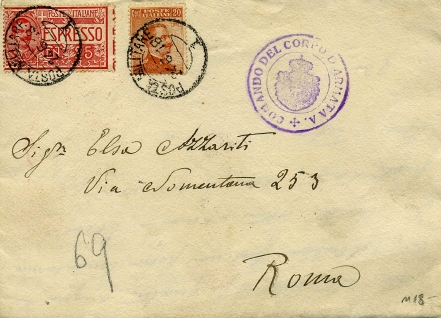 POSTE ITALIANE
ESPRESSO
POSTE ITALIANE
20
POSTA MILITARE
POSTA MILITARE
COMANDO DEL CORPO D'ARMATA A.
Sigra Elsa Azzariti
Via Nomentana 253
69
Roma
M18-